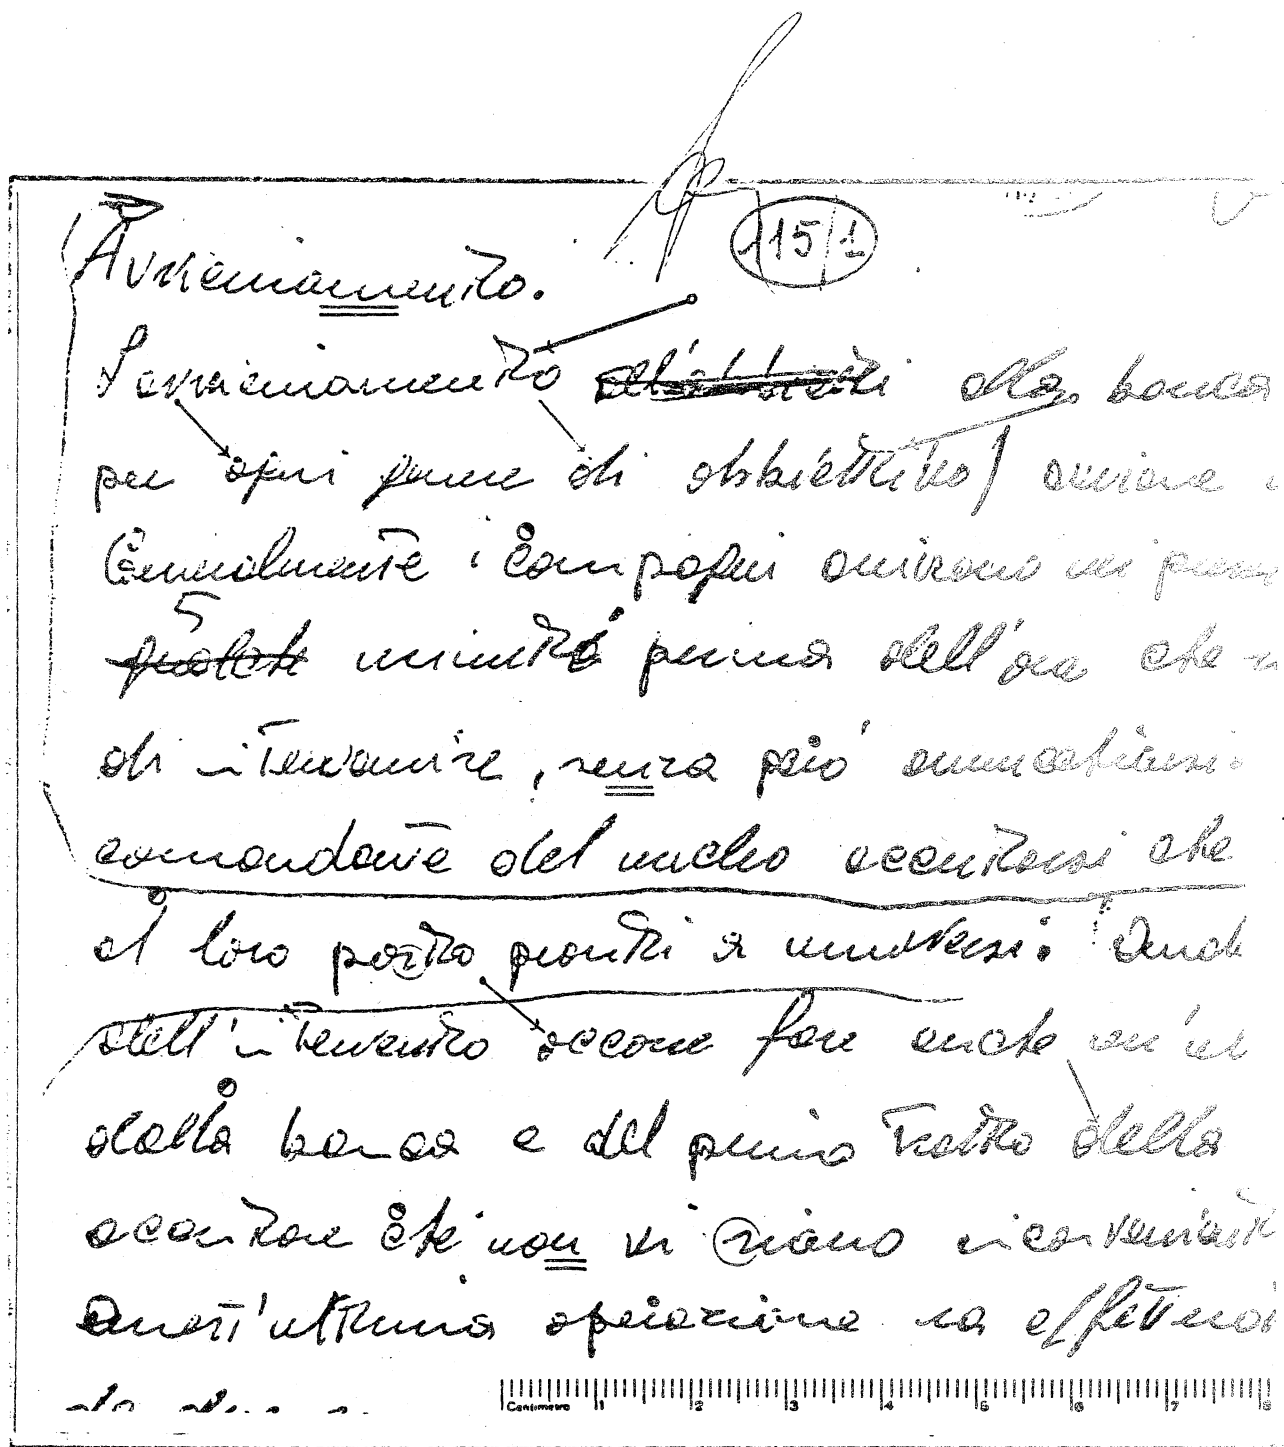 115/1
Avvicinamento.
L'avvicinamento alla banca
per ogni genere di obbiettivo) avviene
Generalmente i compagni arrivano nei pressi
5
minuti prima dell'ora che
di intervenire, senza però avvicinarsi.
comandante del nucleo accertarsi che
al loro posto pronti a muoversi. 
dell'intervento occorre fare anche un'
della banca e del primo tratto della
accertare che non vi siano inconvenienti
Quest'ultima operazione va effettua
Centimetro 1 2 3 4 5 6 7 8